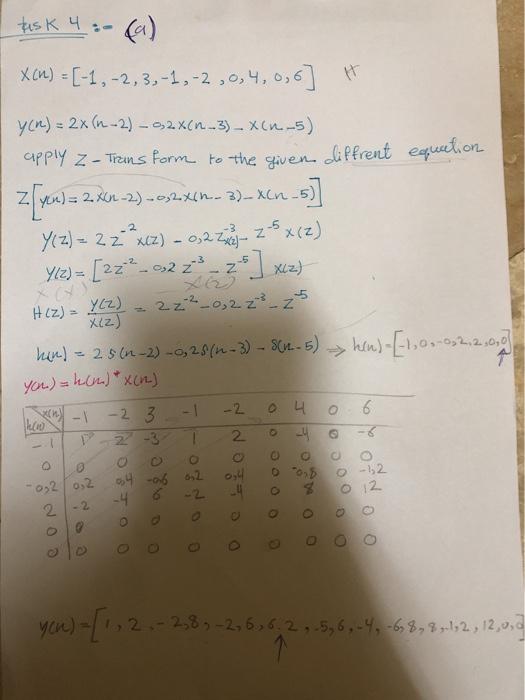 task 4 :- (a)
x(n) = [-1, -2, 3, -1, -2, 0, 4, 0, 6] H
y(n) = 2x(n-2) - 0,2x(n-3) - x(n-5)
apply Z-Transform to the given diffrent equation
Z[y(n) = 2x(n-2) - 0,2x(n-3) - x(n-5)]
Y(z) = 2z⁻² x(z) - 0,2z⁻³ x(z) - z⁻⁵ x(z)
Y(z) = [2z⁻² - 0,2z⁻³ - z⁻⁵] x(z)
H(z) = Y(z)/X(z) = 2z⁻² - 0,2z⁻³ - z⁻⁵
h(n) = 2δ(n-2) - 0,2δ(n-3) - δ(n-5) ⇒ h(n) = [-1,0,-0,2,2,0,0]
↑
y(n) = h(n) * x(n)
h(n) x(n) -1 -2 3 -1 -2 0 4 0 6
-1 1 2 -3 1 2 0 -4 0 -6
0 0 0 0 0 0 0 0 0 0
-0,2 0,2 0,4 -0,6 0,2 0,4 0 -0,8 0 -1,2
2 -2 -4 6 -2 -4 0 8 0 12
0 0 0 0 0 0 0 0 0 0
0 0 0 0 0 0 0 0 0 0
y(n) = [1, 2, -2,8, -2,6, 6,2, -5,6, -4, -6,8, 8, -1,2, 12, 0, 0]
↑